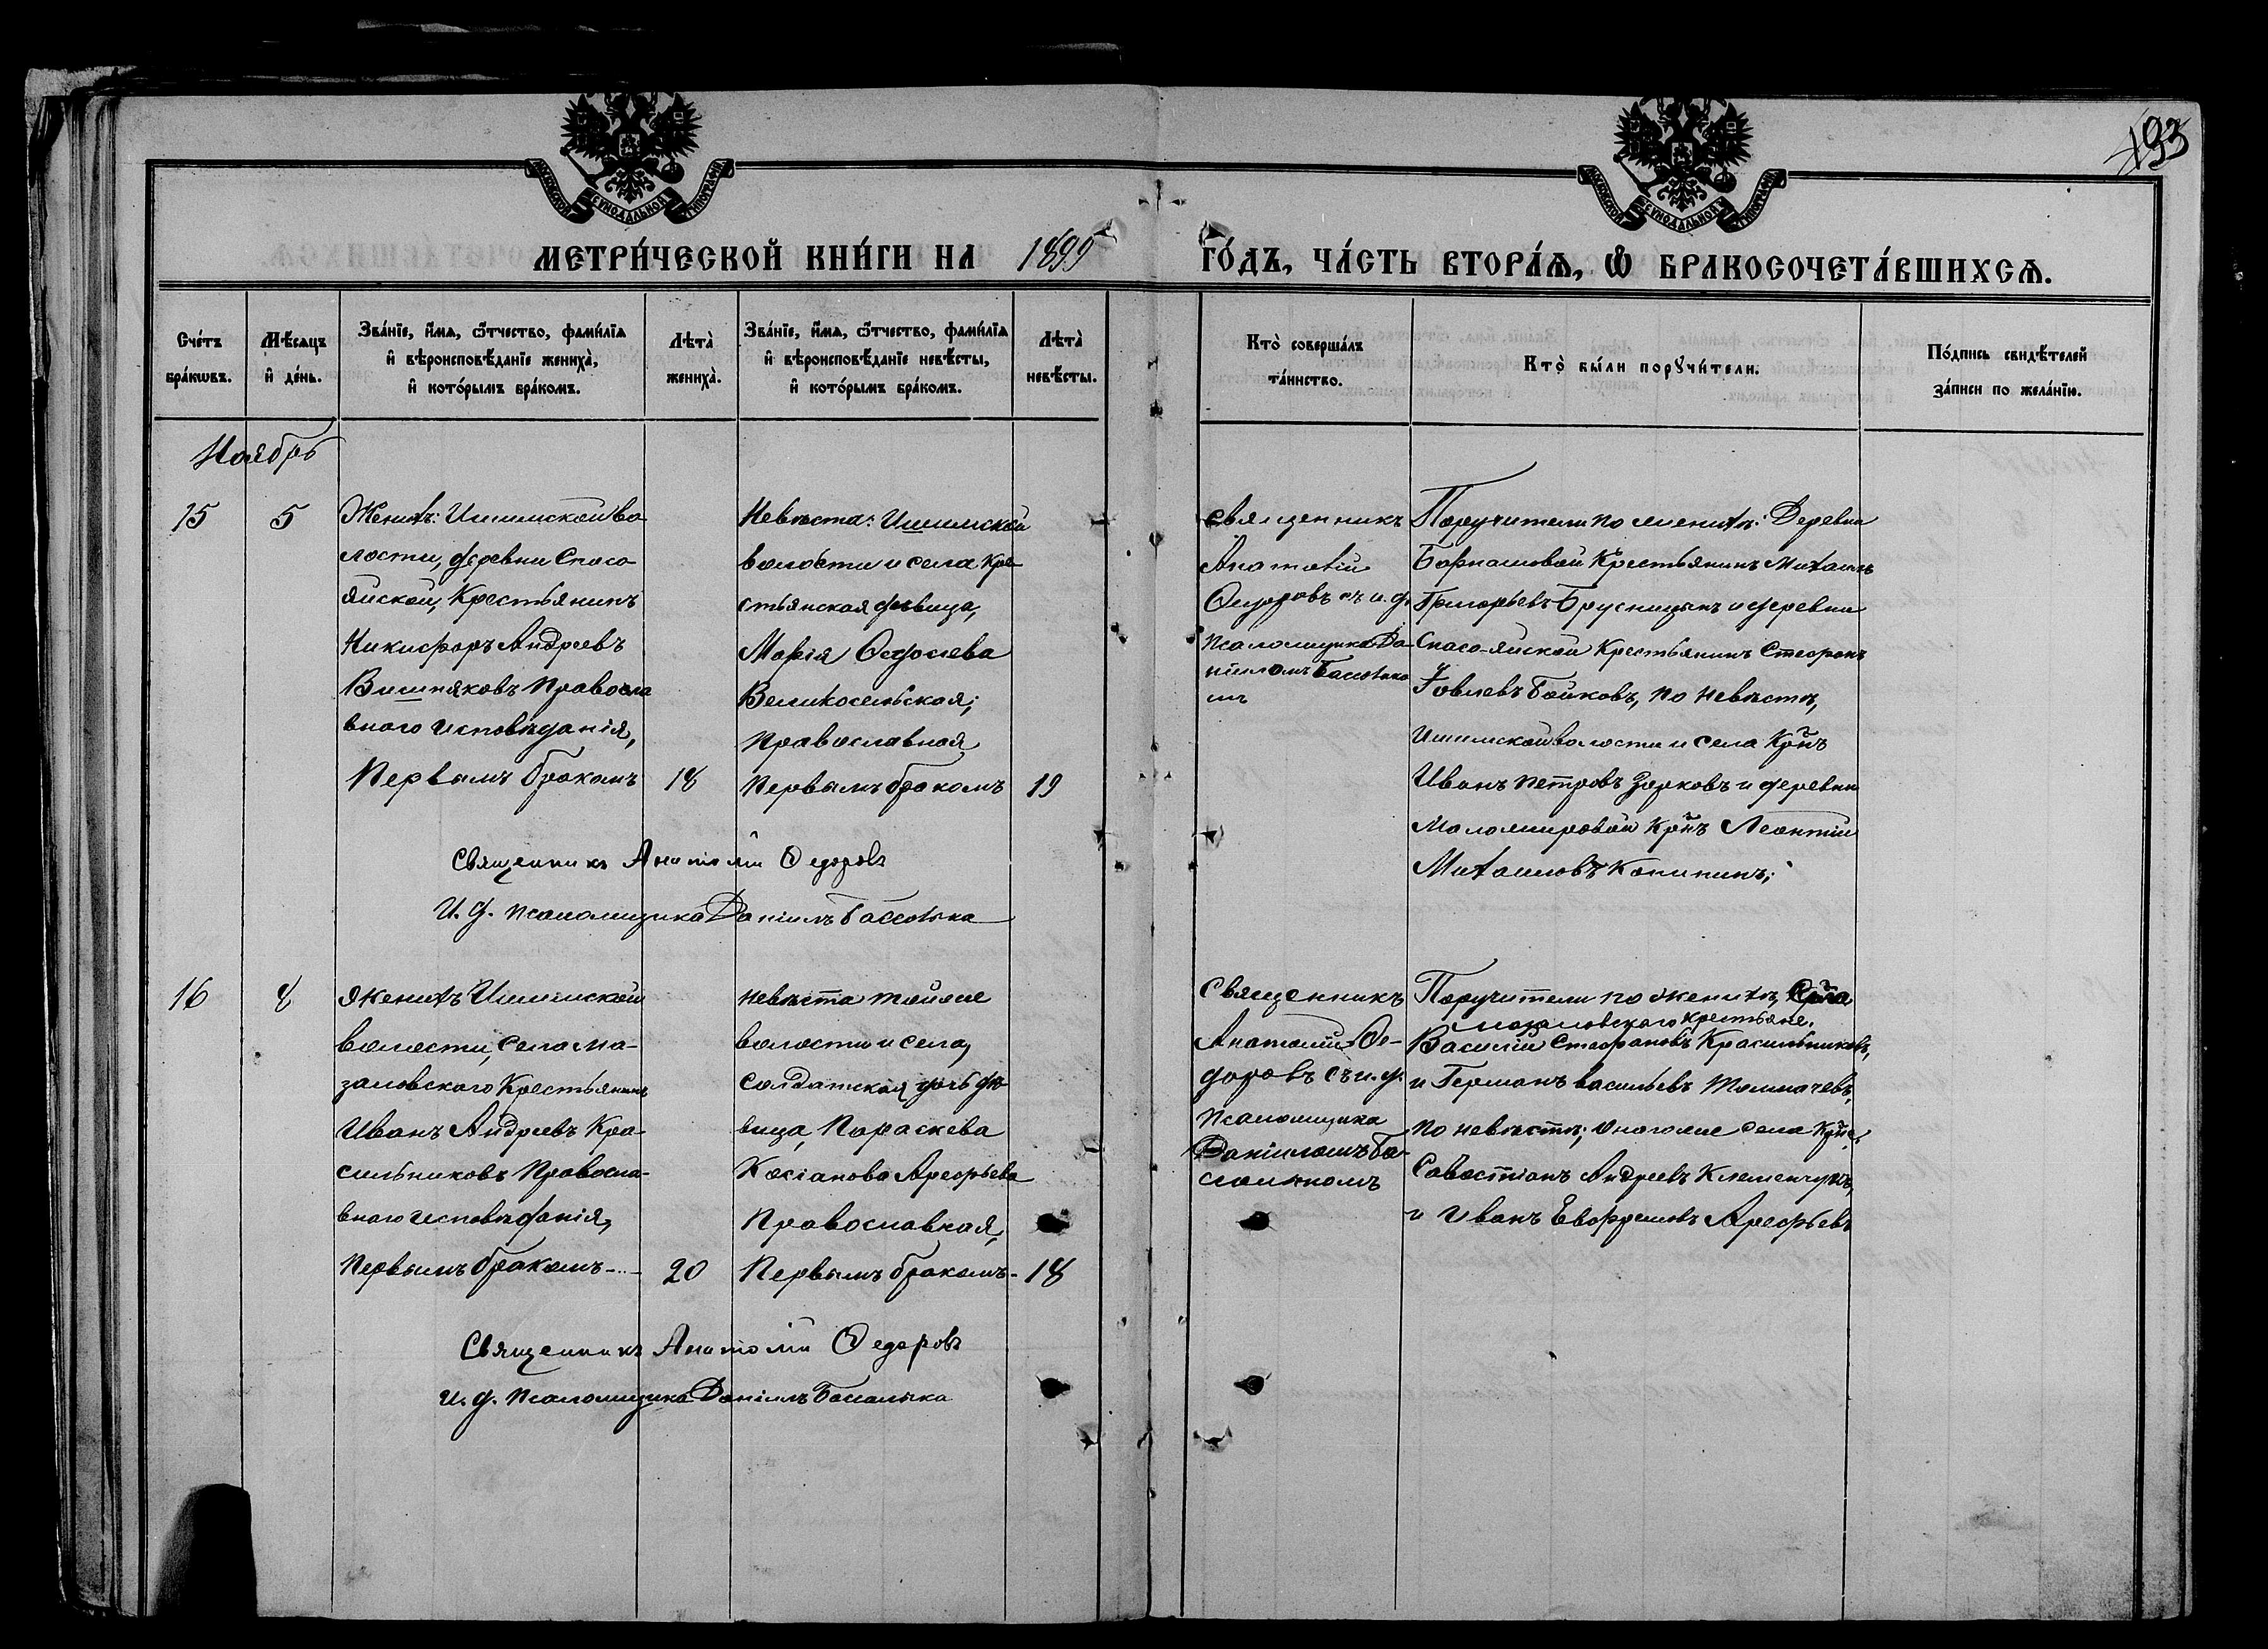 193
МОСКОВСКОЙ СѴНОДАЛЬНОЙ ТИПОГРАФІИ
МОСКОВСКОЙ СѴНОДАЛЬНОЙ ТИПОГРАФІИ
МЕТРИ́ЧЕСКОЙ КНИ́ГИ НА 1899 ГО́ДЪ, ЧА́СТЬ ВТОРА́Ѧ, Ѽ БРАКОСОЧЕТА́ВШИХСѦ.
Сче́тъ
бра́кѡвъ.
Мѣ́сѧцъ
и҆ де́нь.
Зва́нїе, и҆́мѧ, ѻ҆́тчество, фами́лїѧ
и҆ вѣроисповѣ́данїе жениха̀,
и҆ кото́рымъ бра́комъ.
Лѣта̀
жениха̀.
Зва́нїе, и҆́мѧ, ѻ҆́тчество, фами́лїѧ
и҆ вѣроисповѣ́данїе невѣ́сты,
и҆ кото́рымъ бра́комъ.
Лѣта̀
невѣ́сты.
Кто̀ соверша́лъ
та́инство.
Кто̀ бы́ли порꙋчи́тели.
По́дпись свидѣ́телей
за́писи по жела́нїю.
Ноябрь
15
5
Женихъ: Ишимской во
лости, деревни Спасо
яйской, Крестьянинъ
Никифоръ Андреевъ
Вишняковъ Правосла
внаго исповѣданія,
Первымъ бракомъ
18
Невѣста: Ишимской
волости и села Кре
стьянская дѣвица,
Марія Ѳедосіева
Великосельская;
Православная
Первымъ бракомъ
19
Священникъ
Анатолій
Ѳедоровъ съ и. д.
Псаломщика Да-
ніиломъ
Поручители по женихѣ: Деревни
Барнашовой Крестьянинъ Михаилъ
Григорьевъ Брусницынъ и деревни
Спасо-яйской Крестьянинъ Стефанъ
Іовлевъ Байковъ, по невѣстѣ,
Ишимской волости и села Крнъ
Иванъ Петровъ Зарковъ и деревни
Маломировой Крнъ Леонтій
Михаиловъ Копынинъ;
Священникъ Анатолій Ѳедоровъ
И. д. псаломщика Даніилъ
16
8
Женихъ Ишимской
волости, села Ма-
заловскаго Крестьянинъ
Иванъ Андреевъ Кра-
сильниковъ Правосла-
внаго исповѣданія,
Первымъ бракомъ
20
Невѣста тойже
волости и села,
солдатская дочь дѣ-
вица, Параскева
Касіанова Арефьева
Православная,
Первымъ бракомъ
18
Священникъ
Анатолій Ѳе-
доровъ съ и. д.
Псаломщика
Даніиломъ Ба-
Поручители по женихѣ, Села
Мазаловскаго крестьяне.
Василій Стефановъ Красильниковъ,
и Германъ Васильевъ Толмачевъ,
по невѣстѣ; онагоже села Крне
Савостіанъ Андреевъ Клеменчукъ,
и Иванъ Евфремовъ Арефьевъ
Священникъ Анатолій Ѳедоровъ
И. д. псаломщика Даніилъ